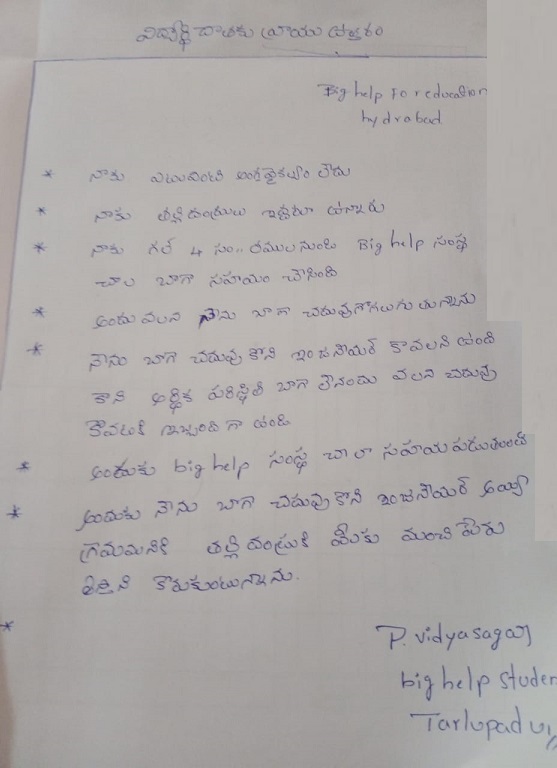 విద్యార్థి దాతకు వ్రాయు ఉత్తరం
Big help For education
hydrabad
* నాకు ఎటువంటి అంగవైకల్యం లేదు
* నాకు తల్లిదండ్రులు ఇద్దరూ ఉన్నారు
* నాకు గల 4 సం.. రముల నుండి Big help సంస్థ
చాల బాగా సహాయం చేసింది
* అందు వలన నేను బాగా చదువుగోగలుగుతున్నాను
* నేను బాగా చదువు కొని ఇంజనీయర్ కావలని ఉంది
కాని ఆర్థిక పరిస్థితి బాగా లేనందు వలన చదువు
కోవటకి ఇబ్బంది గా ఉంది
* అందుకు big help సంస్థ చాలా సహాయ పడుతుంది
* అందుకు నేను బాగా చదువు కొని ఇంజనీయర్ అయ్యి
గ్రామమనికి తల్లి దండ్రుకి మీకు మంచి పేరు
తెత్తని కోరుకుంటున్నాను.
*
P. vidyasagar
big help studen
Tarlupadu